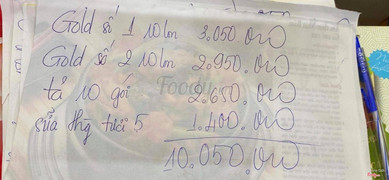 Gold số 1 10 lon 3.050.000
Gold số 2 10 lon 2.950.000
tả 10 gói 2.650.000
sữa thg tươi 5 1.400.000
10.050.000
Foody